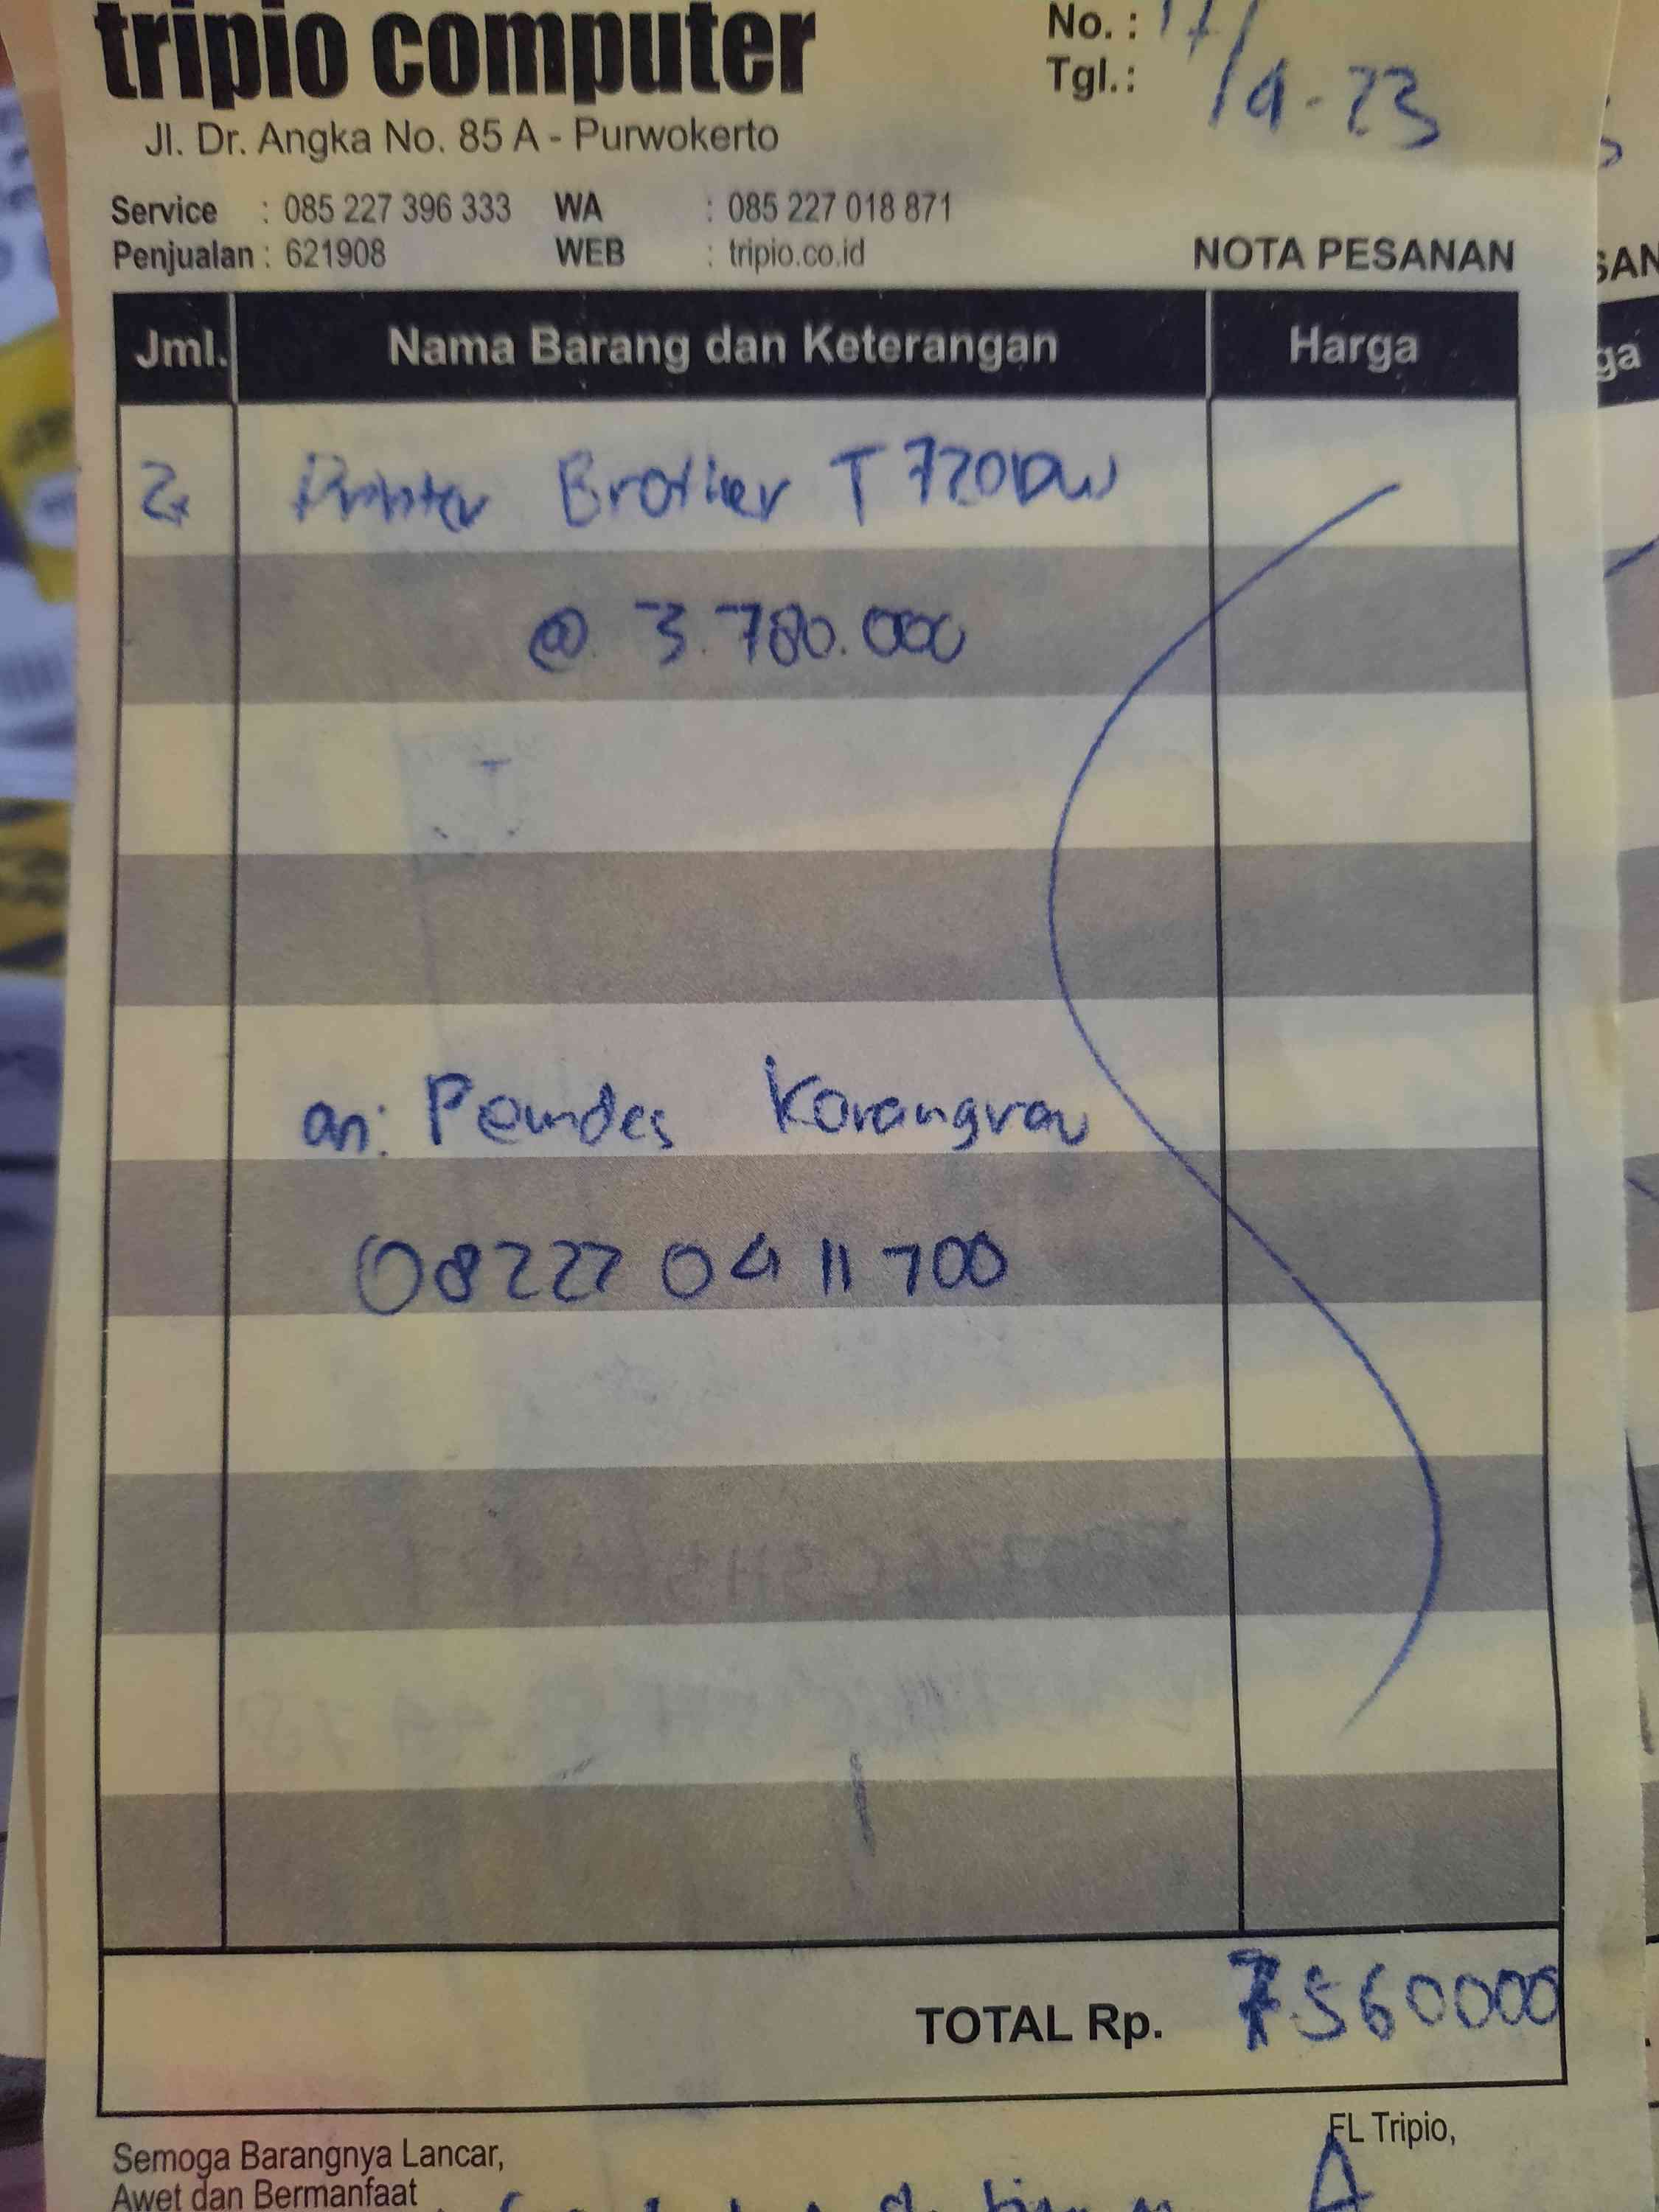 tripio computer
No. : 17/
Tgl. : /4-23
Jl. Dr. Angka No. 85 A - Purwokerto
Service : 085 227 396 333 WA : 085 227 018 871
Penjualan : 621908 WEB : tripio.co.id
NOTA PESANAN
Jml. Nama Barang dan Keterangan Harga
2 Printer Brother T720DW
@ 3.780.000
an: Pemdes Karangrau
08227 04 11 700
TOTAL Rp. 7560000
FL Tripio,
Semoga Barangnya Lancar,
Awet dan Bermanfaat